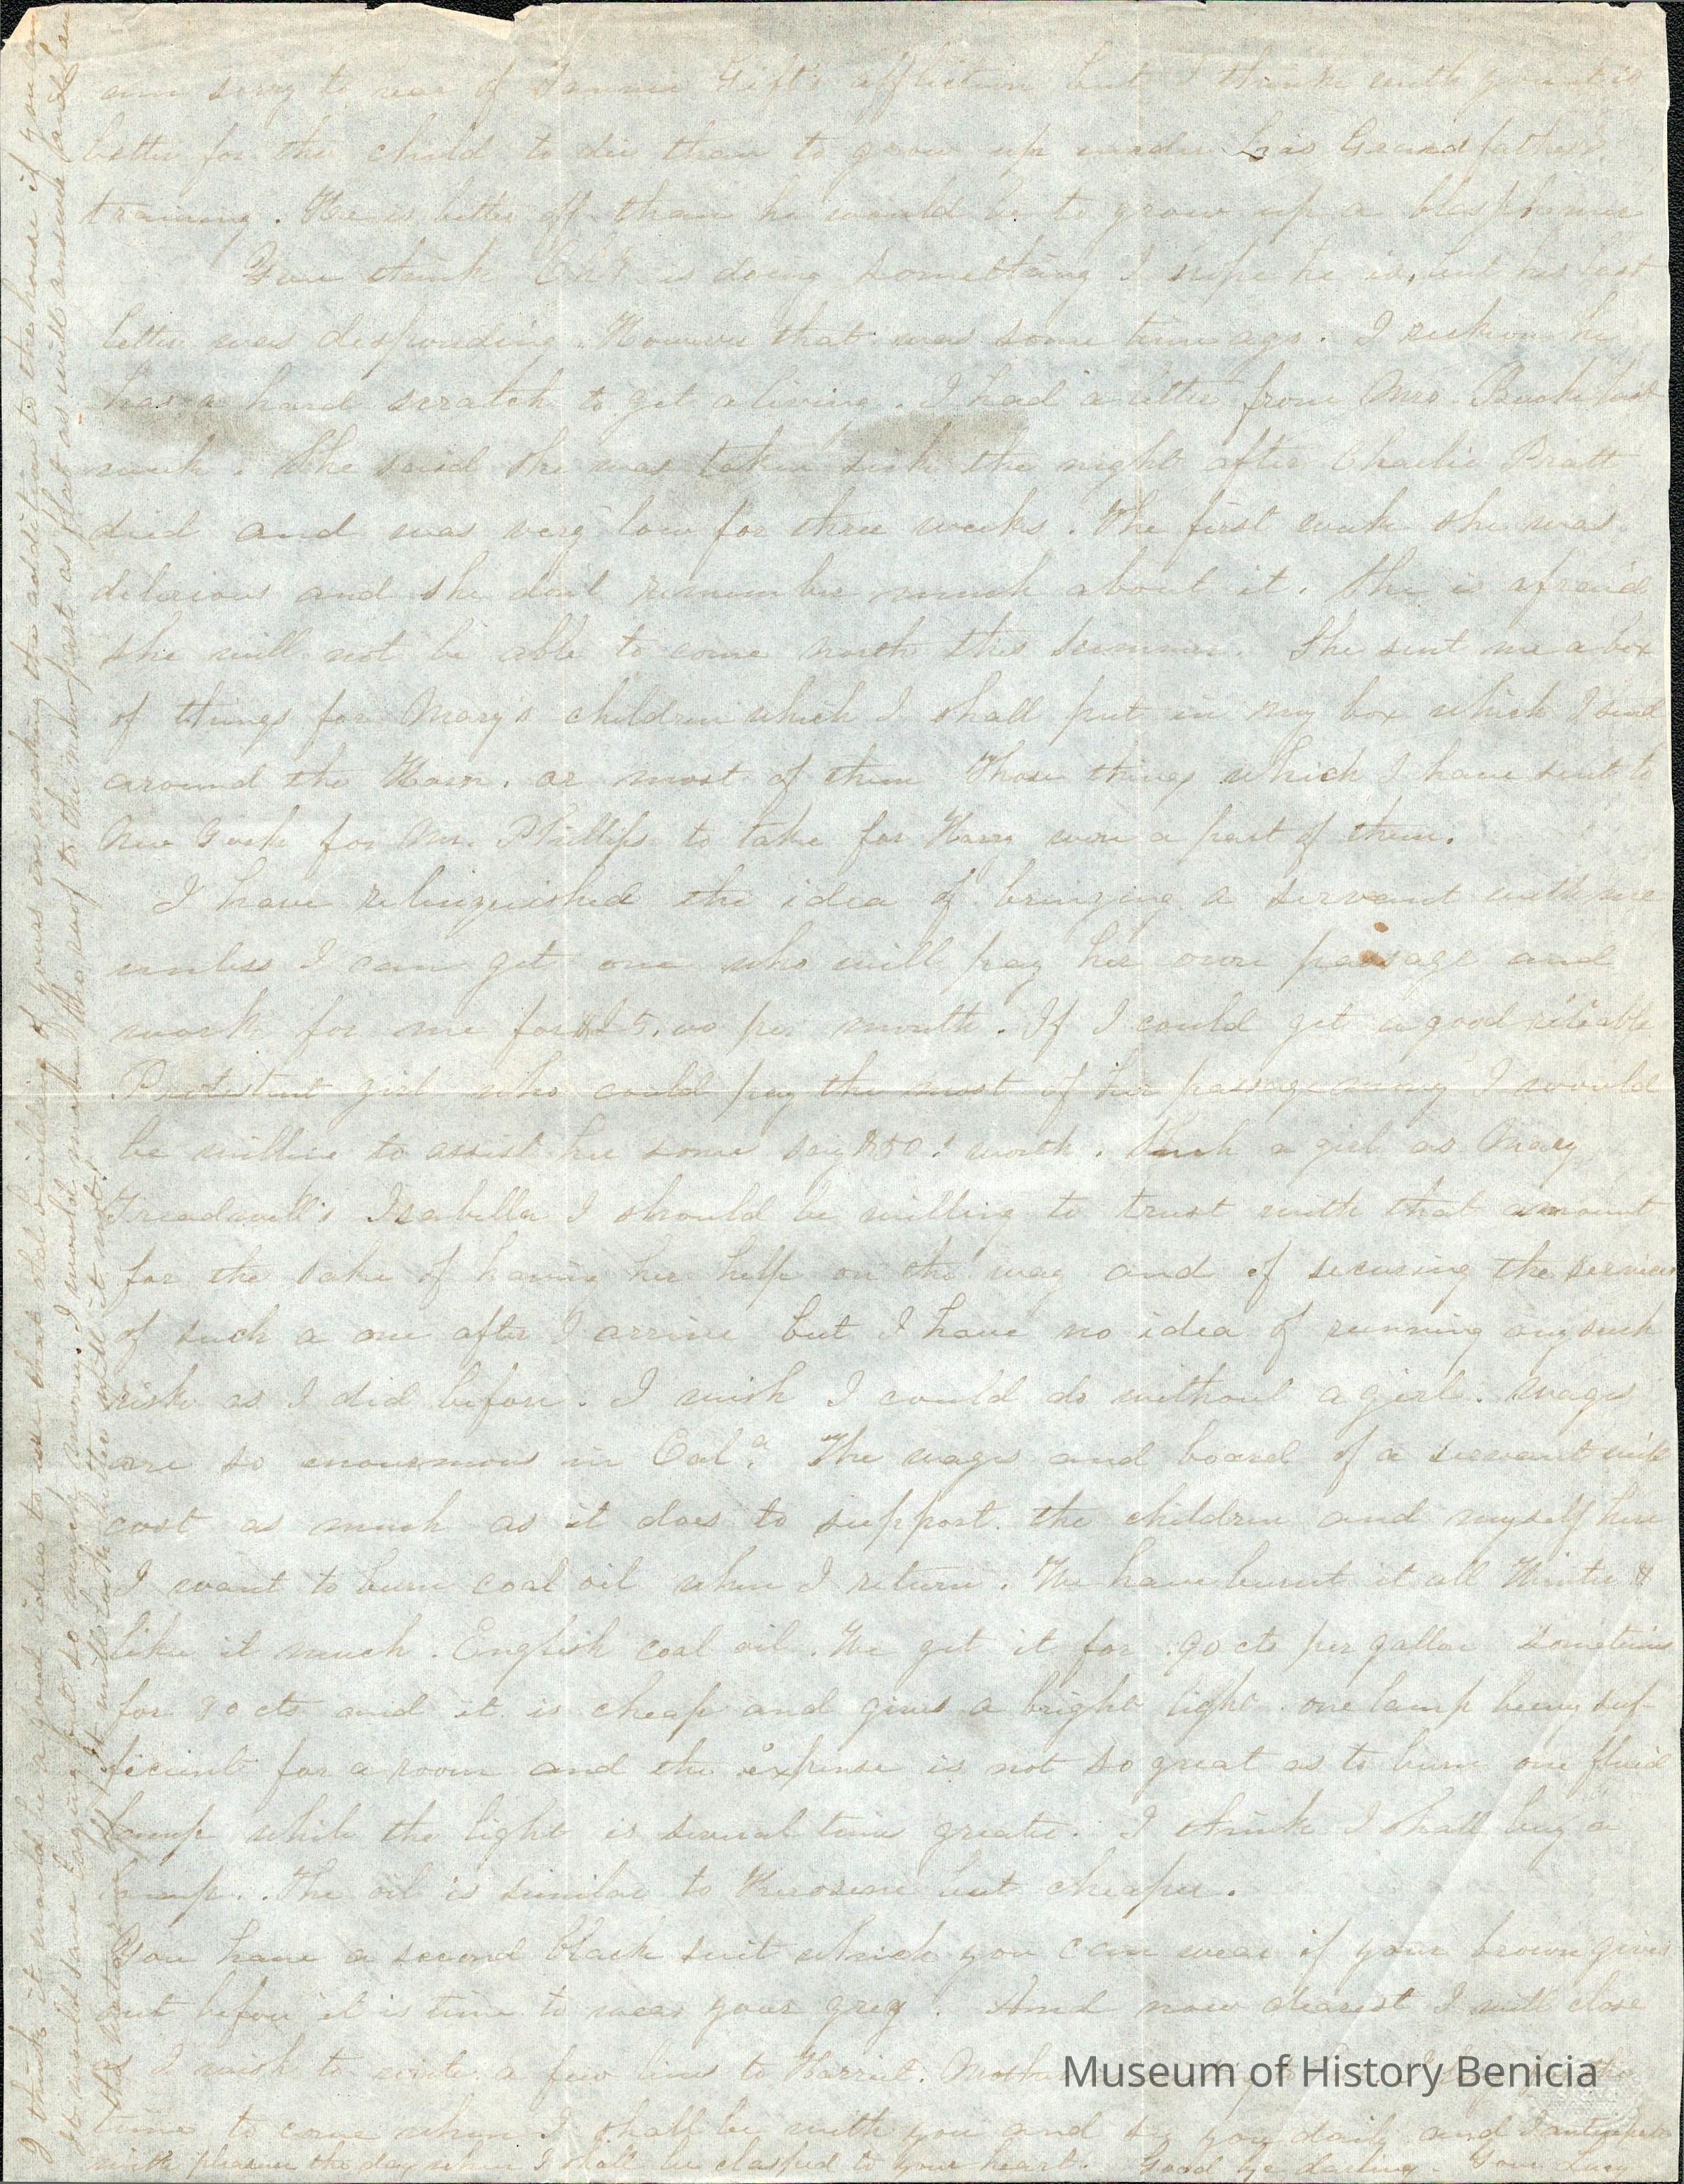 am sorry to hear of Gift's affliction but I think with you it is
better for the child to die than to grow up under his Grandfather's
training. He is better off than he would be to grow up a blasphemer
You think Ch's is doing something I hope he is, but his last
letter was desponding. However that was some time ago. I reckon he
has a hard scratch to get a living. I had a letter from Mrs. last
week. She said she was taken sick the night after Charlie Pratt
died and was very low for three weeks. The first week she was
delirious and she don't remember much about it. She is afraid
she will not be able to come north this summer. She sent me a box
of things for Mary's children which I shall put in my box which I send
around the Horn, or most of them Those things which I have sent to
New York for Mr. Phillips to take for Harry were a part of them.
I have relinquished the idea of bringing a servant with me
unless I can get one who will pay her own passage and
work for me for 5.00 per month. If I could get a good reliable
Protestant girl who could pay the most of her passage money I would
be willing to assist her some say $50. worth. Such a girl as Mary
Treadwell's Isabella I should be willing to trust with that amount
for the sake of having her help on the way and of securing the services
of such a one after I arrive but I have no idea of running any such
risk as I did before. I wish I could do without a girl. Wages
are so enormous in Cal.a The wages and board of a servant will
cost as much as it does to support the children and myself here
I want to burn coal oil when I return. We have burnt it all Winter &
like it much. English coal oil. We get it for 90 cts per gallon sometimes
for 80 cts and it is cheap and gives a bright light one lamp being suf-
ficient for a room and the expense is not so great as to burn one fluid
lamp while the light is several times greater. I think I shall buy a
lamp. The oil is similar to Kerosene but cheaper.
You have a second black suit which you can wear if your brown gives
out before it is time to wear your grey. And now dearest I will close
as I wish to write a few lines to Harriet.
time to come when I shall be with you and see you daily and I anticipate
with pleasure the day when I shall be clasped to your heart. Good bye darling. Your Lucy
I think it would be a good idea to use that old building of yours in making the addition to the house if you can
it would save laying out so much money. I would make the roof to the new part as flat as will answer and have
it will look better will it not?
Museum of History Benicia